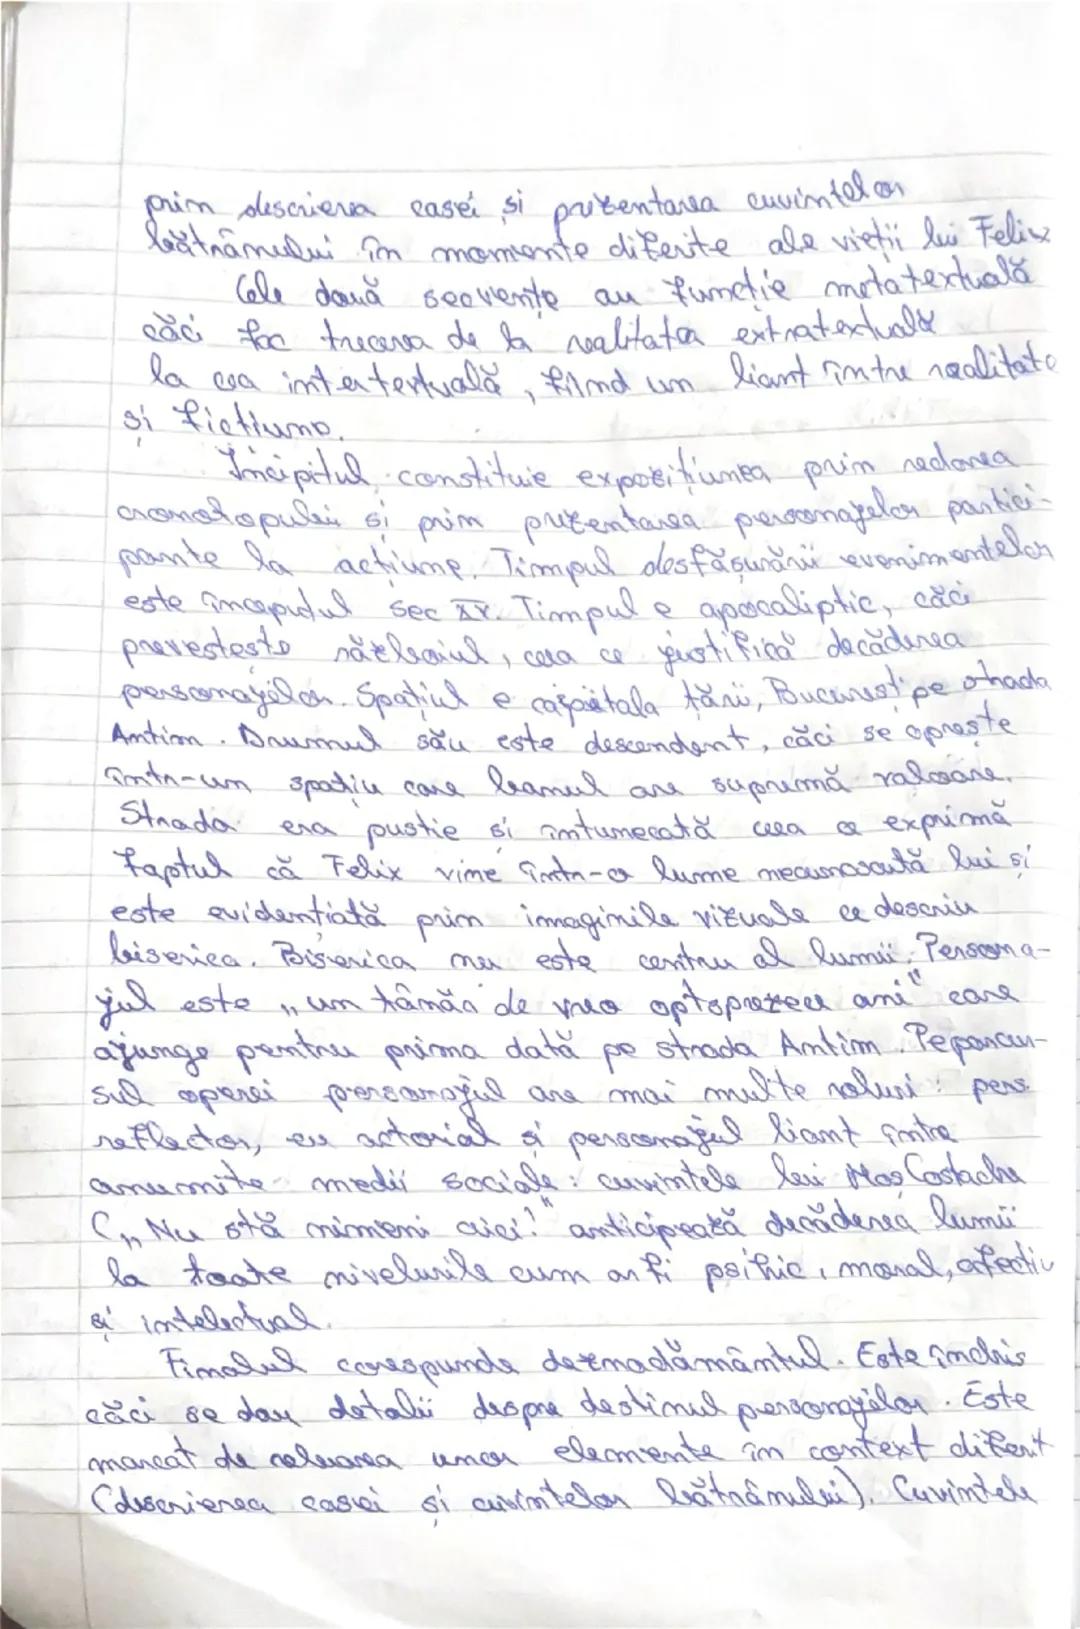 prim descrierea casei și prezentarea cuvintelor
bătrânului în momente diferite ale vieții lui Felix
Cele două secvențe au funcție metatextuală
căci fac trecerea de la realitatea extratextuală
la cea intertextuală, fiind un liant între realitate
și ficțiune.
Incipitul constituie expozițiunea prin redarea
cronotopului și prin prezentarea personajelor partici-
pante la acțiune. Timpul desfășurării evenimentelor
este începutul sec XX. Timpul e apocaliptic, căci
prevestește războiul, ceea ce justifică decăderea
personajelor. Spațiul e capitala țării, București pe strada
Antim. Drumul său este descendent, căci se oprește
într-un spațiu care banul are supremă valoare.
Strada era pustie și întunecată ceea ce exprimă
faptul că Felix vine într-o lume necunoscută lui și
este evidențiată prin imaginile vizuale ce descriu
biserica. Biserica nu este centru al lumii. Persona-
jul este „un tânăr de vreo optsprezece ani" care
ajunge pentru prima dată pe strada Antim. Pe parcur-
sul operei personajul are mai multe roluri: pers.
reflector, eu actorial și personajul liant între
anumite medii sociale: cuvintele lui Moș Costache
(„Nu stă nimeni aici!" anticipează decăderea lumii
la toate nivelurile cum ar fi psihic, moral, afectiv
și intelectual.
Finalul corespunde deznodământul. Este închis
căci se dau detalii despre destinul personajelor. Este
marcat de reluarea unor elemente în context diferit
(descrierea casei și cuvintelor bătrânului). Cuvintele